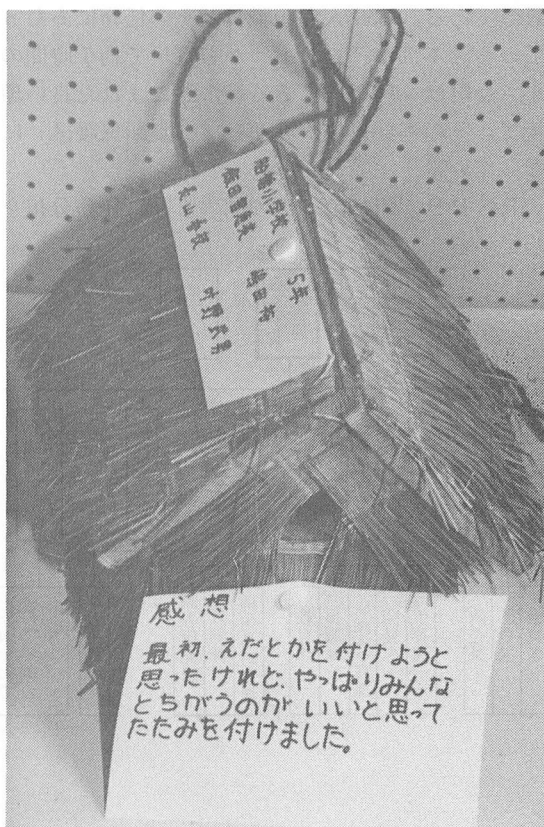 小学校 5年
感想
最初、えだとかを付けようと
思ったけれど、やっぱりみんな
とちがうのがいいと思って
たたみを付けました。